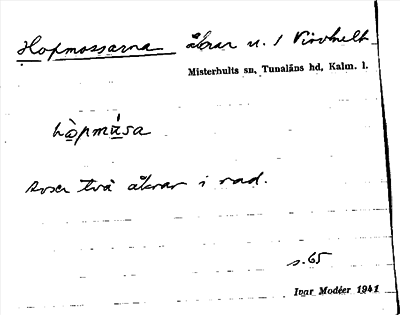 Hopmossarna åkrar n. 1 Virvhult
Misterhults sn, Tunaläns hd, Kalm. l.
hòpmá̱sa
avser två åkrar i rad.
s. 65
Ivar Modéer 1941